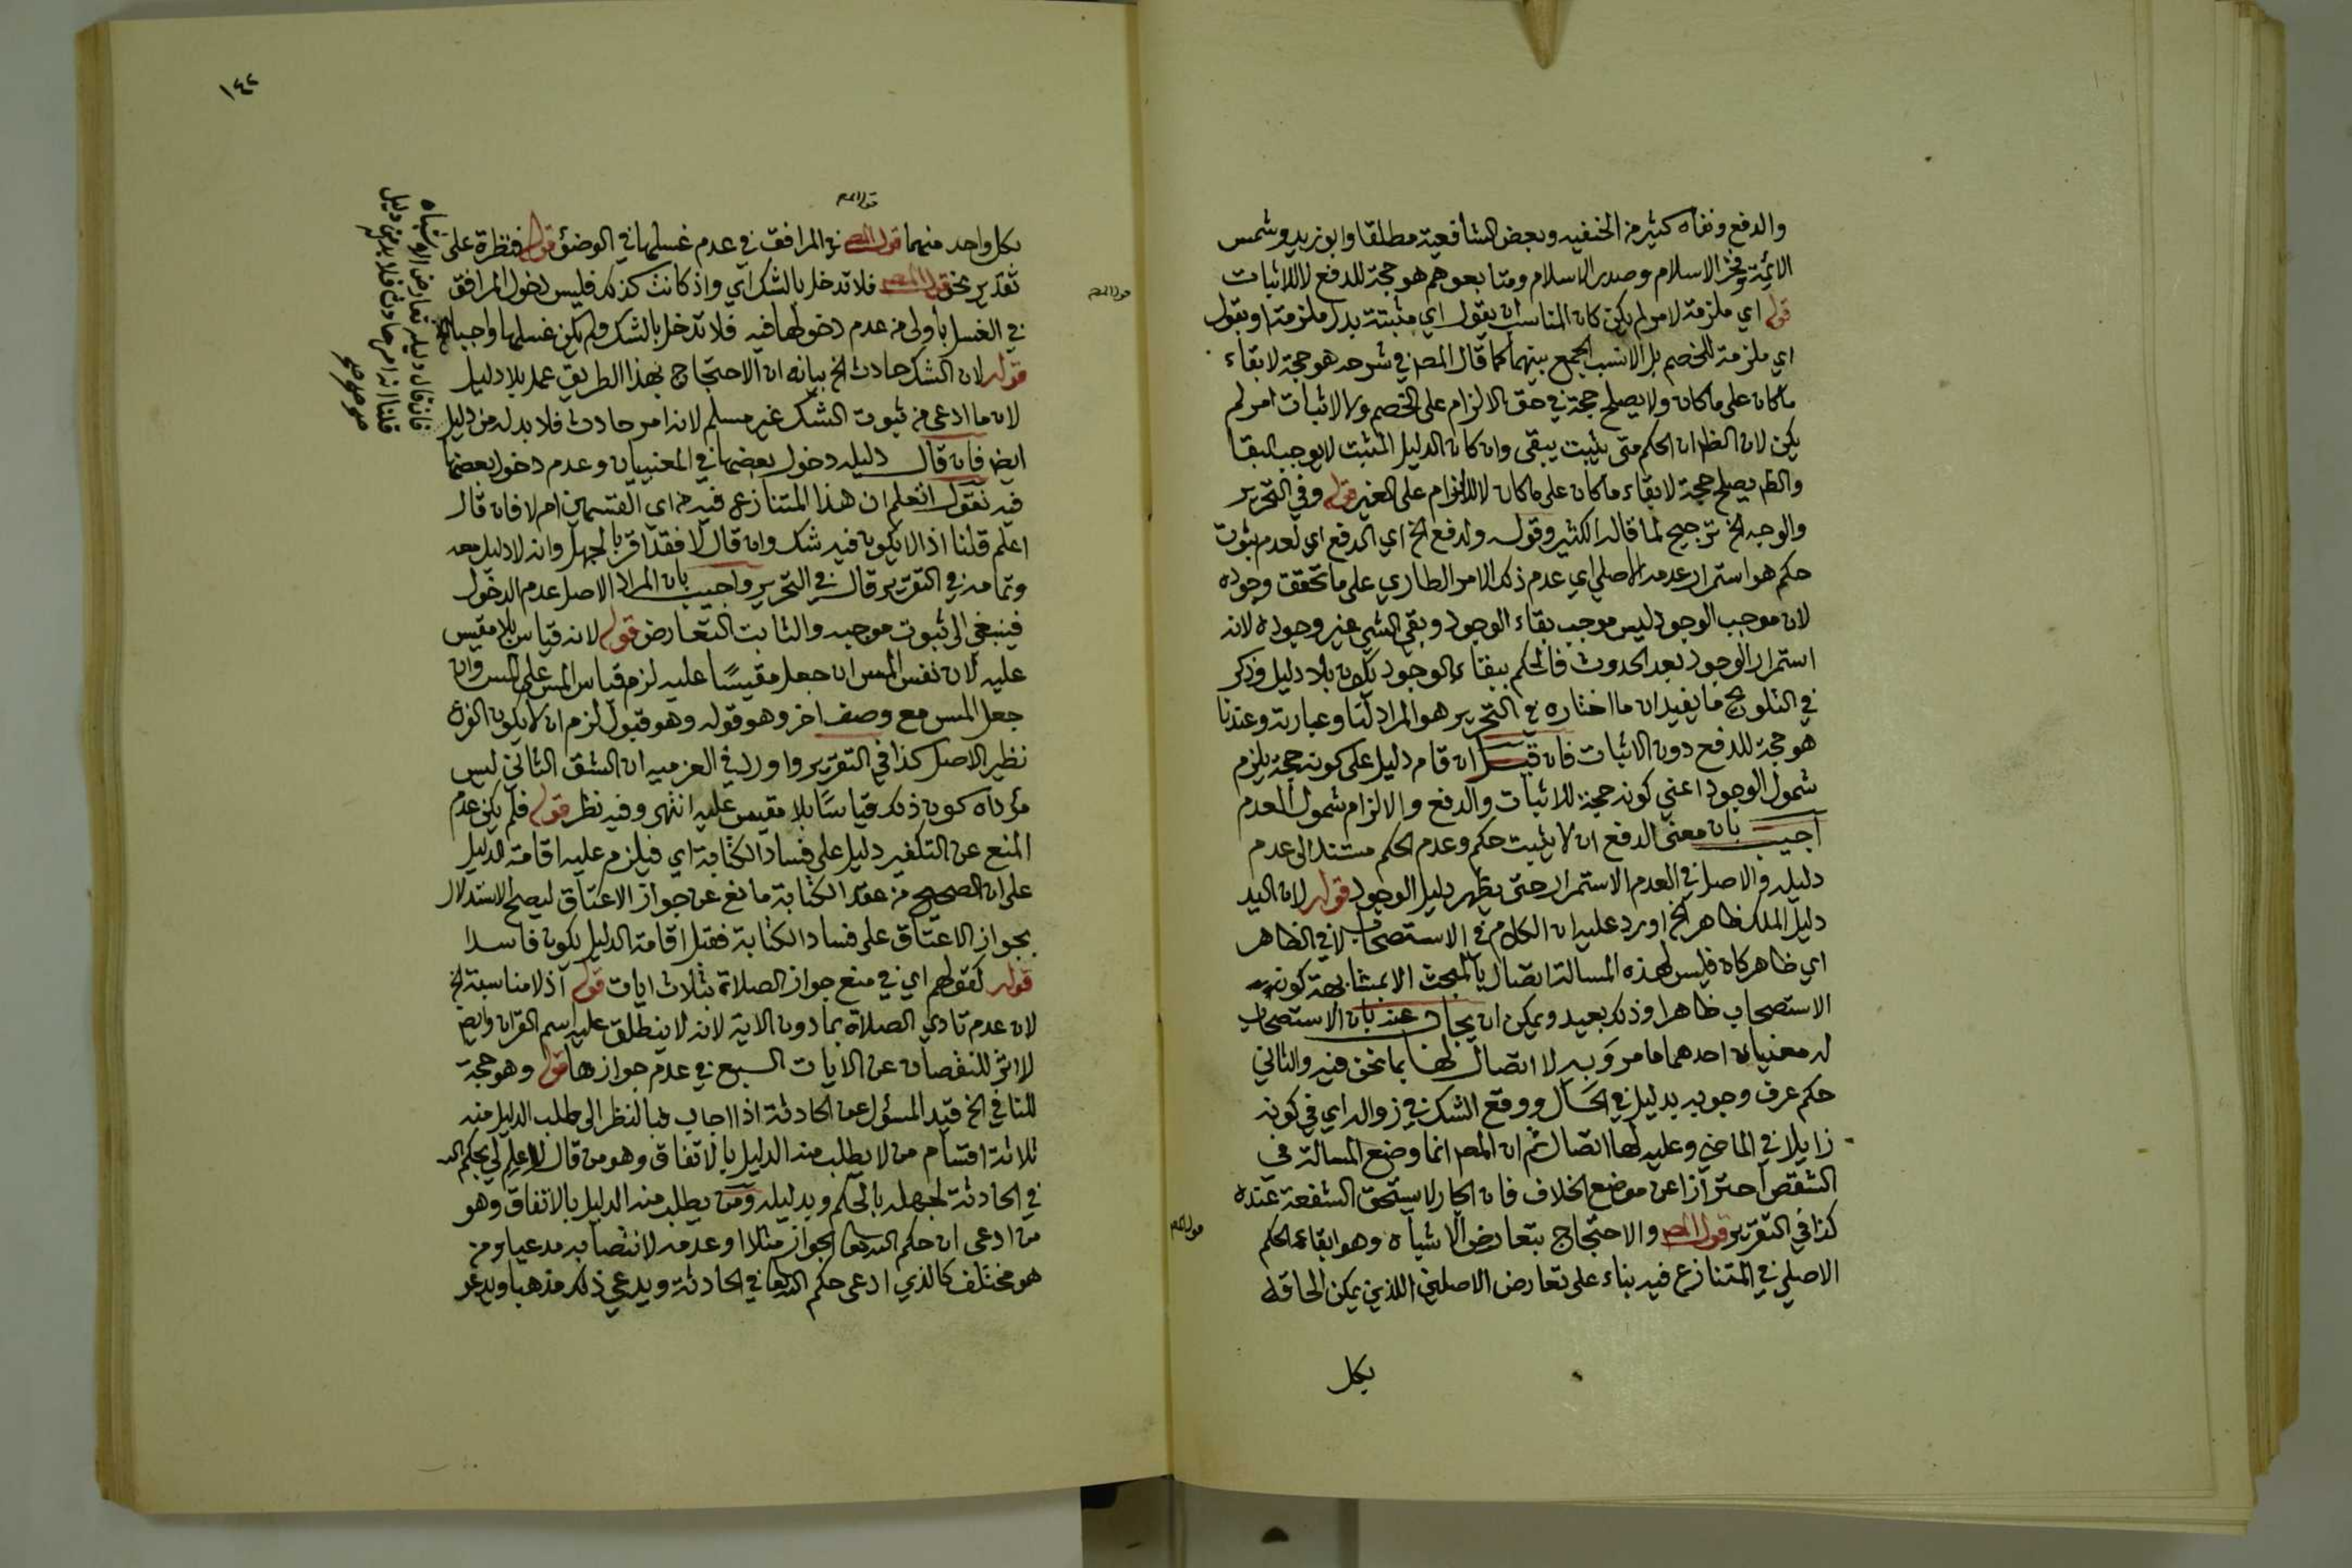 والدفع ونفاه كثير من الحنفيه وبعض الشافعية مطلقا وابو زيد وشمس
الائمة وفخر الاسلام وصدر الاسلام ومتابعوهم هو حجة للدفع لا للاثبات
قوله اي ملزمة لامر لم يكن كان المناسب ان يقول اي مثبتة بدل ملزمة او يقول
اي ملزمة للخصم بل الانسب الجمع بينهما كما قال المصـ في شرحه هو حجة لابقاء
ماكان على ماكان ولا يصلح حجة في حق الالزام على الخصم ولا لاثبات امر لم
يكن لان الظـ ان الحكم متى يثبت يبقى وان كان الدليل المثبت لا يوجب البقا
والظـ يصلح حجة لابقاء ماكان على ماكان لا للالزام على الغير قوله وفي التحرير
والوجه الخ ترجيح لما قاله الكثير وقوله والدفع الخ اي الدفع اي لعدم ثبوت
حكم هو استمرار عدمه الاصلي اي عدم ذلك الامر الطاري على ما تحقق وجوده
لان موجب الوجود ليس موجب بقاء الوجود وبقي الشي غير وجوده لانه
استمرار الوجود بعد الحدوث فالحكم ببقاء الوجود يكون بلا دليل وذكر
في التلويح ما يفيد ان ما اختاره في التحرير هو المراد لنا وعبارته وعندنا
هو حجة للدفع دون الاثبات فان قيل ان قام دليل على كونه حجة يلزم
شمول الوجود اعني كونه حجة للاثبات والدفع والا لزم شمول العدم
اجيب بان معنى الدفع ان لا يثبت حكم وعدم الحكم مستند الى عدم
دليله والاصل في العدم الاستمرار حتى يظهر دليل الوجود قوله لان اليد
دليل الملك ظاهر الخ اورد عليه ان الكلام في الاستصحاب لا في الظاهر
اي ظاهر كان فليس لهذه المسالة اتصال بالمبحث الا بمشابهة كونه
الاستصحاب ظاهرا وذلك بعيد ويمكن ان يجاب عنه بان الاستصحاب
له معنيان احدهما ما مر وبه لا اتصال لها بما نحن فيه والثاني
حكم عرف وجوبه بدليل في الحال ووقع الشك في زواله اي في كونه
زايلا في الماضي وعليه لها اتصال ثم ان المصـ انما وضع المسالة في
الشقص احترازا عن موضع الخلاف فان الجار لا يستحق الشفعة عنده
كذا في التقرير قول المصـ والاحتجاج بتعارض الاشباه وهو ابقاء الحكم
الاصلي في المتنازع فيه بناء على تعارض الاصلين اللذين يمكن الحاقه
بكل
قول المصـ
١٤٢
قول المصـ
بكل واحد منهما قول المصـ في المرافق في عدم غسلها في الوضؤ قوله فنظرة على
تقدير نحن قول المصـ فلا تدخل بالشك اي واذ كانت كذلك فليس دخول المرافق
في الغسل باولى من عدم دخولها فيه فلا تدخل بالشك ولم يكن غسلها واجبا
قوله لان الشك حادث الخ بيانه ان الاحتجاج بهذا الطريق عمل بلا دليل
لان ما ادعى من ثبوت الشك غير مسلم لانه امر حادث فلا بد له من دليل
ايض فان قال دليله دخول بعضها في المغييان وعدم دخول بعضها
فيه نقول اتعلم ان هذا المتنازع فيه من اي القسمين ام لا فان قال
اعلم قلنا اذا لا يكون فيه شك وان قال لا فقد اقر بالجهل وانه لا دليل معه
وتمامه في التقرير قال في التحرير واجيب بان المراد الاصل عدم الدخول
فينبغي الى ثبوت موجبه والثابت التعارض قوله لانه قياس بلا مقيس
عليه لان نفس المس ان جعل مقيسًا عليه لزم قياس المس على المس وان
جعل المس مع وصف اخر وهو قوله وهو قبول لزم ان لا يكون الفرع
نظير الاصل كذا في التقرير واورد في العزمية ان الشق الثاني ليس
مؤداه كون ذلك قياسًا بلا مقيس عليه انتهى وفيه نظر قوله فلم يكن عدم
المنع عن التكفير دليل على فساد الكتابة اي فيلزم عليه اقامة الدليل
على ان الصحيح من عقد الكتابة مانع عن جواز الاعتاق ليصح الاستدلال
بجواز الاعتاق على فساد الكتابة فقبل اقامة الدليل يكون فاسدا
قوله كقولهم اي في منع جواز الصلاة بثلاث ايات قوله اذ لا مناسبة الخ
لان عدم تادي الصلاة بما دون الاية لانه لا ينطلق عليه اسم القران وايض
لا اثر للنقصان عن الايات السبع في عدم جوازها قوله وهو حجة
للنافي الخ قيد المسؤل عن الحادثة اذا اجاب فبالنظر الى طلب الدليل منه
ثلاثة اقسام من لا يطلب منه الدليل بالاتفاق وهو من قال لا علم لي بحكم الله
في الحادثة لجهله بالحكم وبدليله ومن يطلب منه الدليل بالاتفاق وهو
من ادعى ان حكم الله تعا الجواز مثلا او عدمه لانتصابه مدعيا ومن
هو مختلف كالذي ادعى حكم الله تعا في الحادثة ويدعي ذلك مذهبا ويدعو
فان قال دليله تعارض الاشباه
قلنا انه امر حادث فلا بد له من دليل
قول المصـ